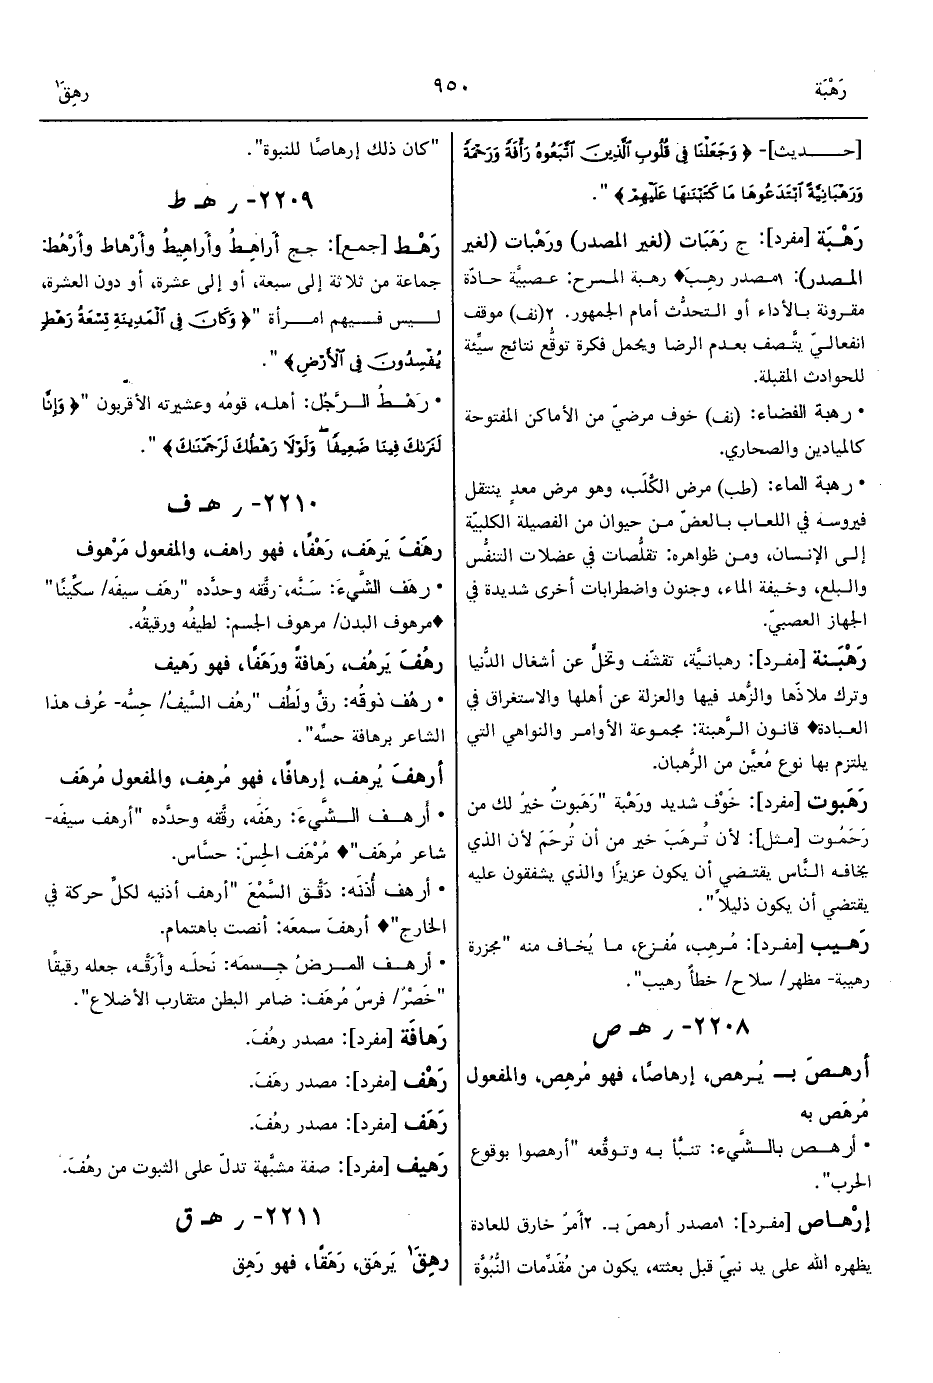 رَهْبَة
٩٥٠
رهِقَ١
[حـــديث]- ﴿ وَجَعَلْنَا فِي قُلُوبِ الَّذِينَ اتَّبَعُوهُ رَأْفَةً وَرَحْمَةً
وَرَهْبَانِيَّةً ابْتَدَعُوهَا مَا كَتَبْنَاهَا عَلَيْهِمْ ﴾ ".
رَهْبَة [مفرد]: ج رَهَبَات (لغير المصدر) ورَهْبات (لغير
المصدر): ١مصدر رهِبَ♦ رهبة المسرح: عصبيَّة حادّة
مقرونة بالأداء أو التحدُّث أمام الجمهور. ٢(نف) موقف
انفعاليّ يتَّصف بعدم الرضا ويحمل فكرة توقُّع نتائج سيِّئة
للحوادث المقبلة.
• رهبة الفضاء: (نف) خوف مرضيّ من الأماكن المفتوحة
كالميادين والصحاري.
• رهبة الماء: (طب) مرض الكَلَب، وهو مرض معدٍ ينتقل
فيروسه في اللعاب بالعضّ من حيوان من الفصيلة الكلبيّة
إلى الإنسان، ومن ظواهره: تقلُّصات في عضلات التنفُّس
والبلع، وخيفة الماء، وجنون واضطرابات أخرى شديدة في
الجهاز العصبيّ.
رَهْبَنة [مفرد]: رهبانيَّة، تقشّف وتخلٍّ عن أشغال الدُّنيا
وترك ملاذّها والزُّهد فيها والعزلة عن أهلها والاستغراق في
العبادة♦ قانون الرَّهبنة: مجموعة الأوامر والنواهي التي
يلتزم بها نوع مُعيَّن من الرُّهبان.
رَهَبوت [مفرد]: خَوْف شديد ورَهْبة "رَهَبوتٌ خيرٌ لك من
رَحَمُوت [مثل]: لأن تُرهَبَ خير من أن تُرحَمَ لأن الذي
يخافه النَّاس يقتضي أن يكون عزيزًا والذي يشفقون عليه
يقتضي أن يكون ذليلاً".
رَهيب [مفرد]: مُرهِب، مُفزِع، ما يُخاف منه "مجزرة
رهيبة- مظهر/ سلاح/ خطأ رهيب".
٢٢٠٨- ر هـ ص
أرهصَ بـ يُرهص، إرهاصًا، فهو مُرهِص، والمفعول
مُرهَص به
• أرهص بالشَّيء: تنبَّأ به وتوقَّعه "أرهصوا بوقوع
الحرب".
إرْهاص [مفرد]: ١مصدر أرهصَ بـ. ٢أمرٌ خارق للعادة
يظهره الله على يد نبيّ قبل بعثته، يكون من مُقَدِّمات النُّبُوَّة
"كان ذلك إرهاصًا للنبوة".
٢٢٠٩- ر هـ ط
رَهْط [جمع]: جج أراهِطُ وأراهيطُ وأرْهاط وأرْهُط:
جماعة من ثلاثة إلى سبعة، أو إلى عشرة، أو دون العشرة،
ليس فيهم امرأة "﴿ وَكَانَ فِي الْمَدِينَةِ تِسْعَةُ رَهْطٍ
يُفْسِدُونَ فِي الْأَرْضِ﴾ ".
• رَهْطُ الرَّجُل: أهله، قومُه وعشيرته الأقربون "﴿ وَإِنَّا
لَنَرَاكَ فِينَا ضَعِيفًا ۖ وَلَوْلَا رَهْطُكَ لَرَجَمْنَاكَ ﴾ ".
٢٢١٠- ر هـ ف
رهَفَ يَرهَف، رَهْفًا، فهو راهف، والمفعول مَرْهوف
• رهَف الشَّيءَ: سَنَّه، رقَّقه وحدَّده "رهَف سيفَه/ سكِّينًا"
♦مرهوف البدن/ مرهوف الجسم: لطيفُه ورقيقُه.
رهُفَ يَرهُف، رَهافةً ورَهَفًا، فهو رَهيف
• رهُف ذوقُه: رقَّ ولَطُف "رهُف السَّيفُ/ حِسُّه- عُرف هذا
الشاعر برهافة حسِّه".
أرهفَ يُرهف، إرهافًا، فهو مُرهِف، والمفعول مُرهَف
• أرهف الشَّيءَ: رهَفَه، رقَّقه وحدَّده "أرهف سيفَه-
شاعر مُرهَف"♦ مُرْهَف الحِسّ: حسَّاس.
• أرهف أُذنَه: دَقَّق السَّمْعَ "أرهف أذنيه لكلِّ حركة في
الخارج"♦ أرهفَ سمعَه: أنصت باهتمام.
• أرهف المرضُ جسمَه: نَحلَه وأَرَقَّه، جعله رقيقًا
"خَصْرٌ/ فرسٌ مُرهَف: ضامر البطن متقارب الأضلاع".
رَهافَة [مفرد]: مصدر رهُفَ.
رَهْف [مفرد]: مصدر رهَفَ.
رَهَف [مفرد]: مصدر رهُفَ.
رَهيف [مفرد]: صفة مشبَّهة تدلّ على الثبوت من رهُفَ.
٢٢١١- ر هـ ق
رهِقَ١ يَرهَق، رَهَقًا، فهو رَهِق